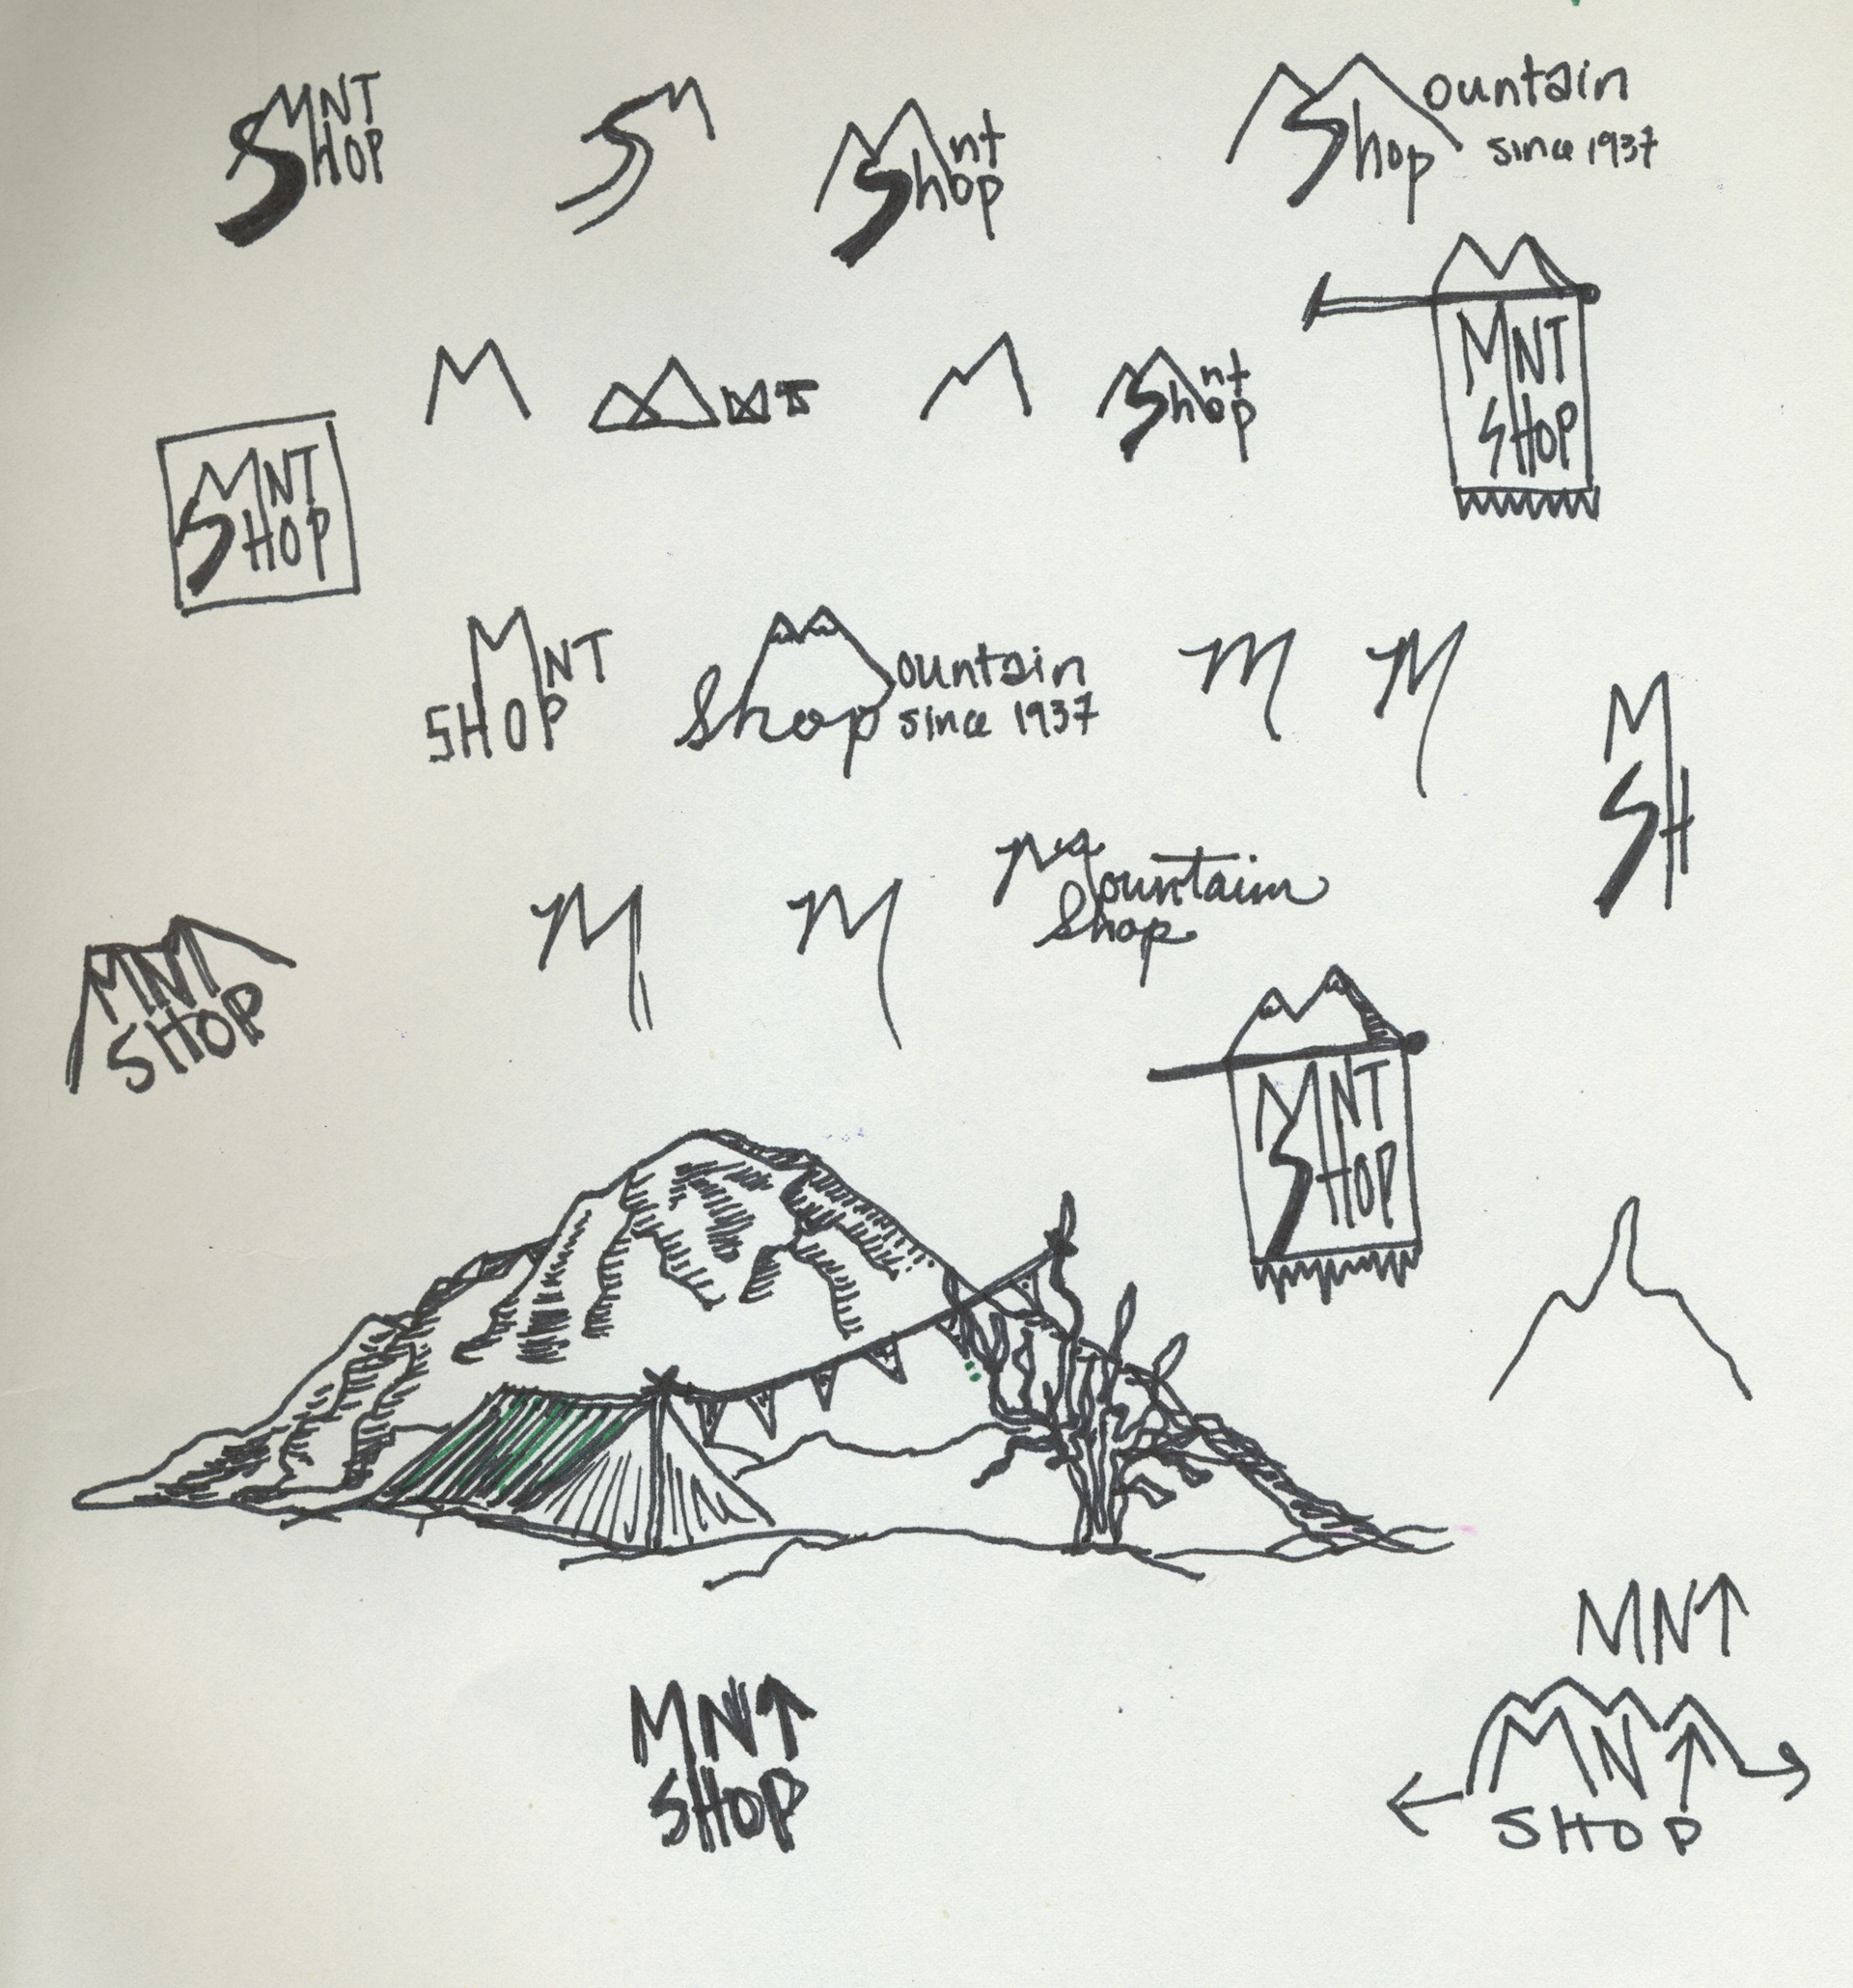 MNT
SHOP
SM
Mnt
Shop
Mountain
Shop
since 1937
MNT
SHOP
M
MNT
M
Mnt
Shop
MNT
SHOP
MNT
SHOP
Mountain
Shop
since 1937
M
M
M
SH
M
M
Mountain
Shop
MNT
SHOP
MNT
SHOP
MN↑
MN↑
SHOP
MN↑
SHOP